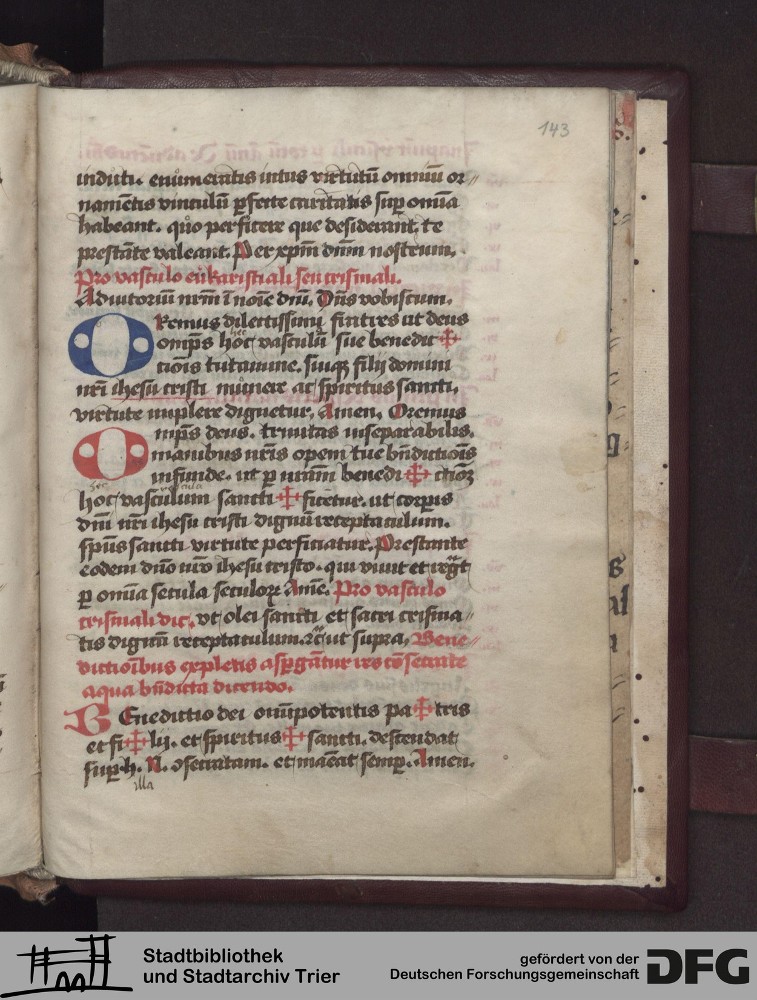 143
induti. enumeratis intus virtutū omniū or//
namētis vinculū ꝑfecte caritatis suꝑ omīa
habeant. quo perficere que desiderant te
prestāte valeant. Per xp̄m dn̄m nostrum.
Pro vasculo eukaristiali seu crismali.
Adiutoriū nr̄m ī noīe dn̄i. Dn̄s vobiscum.
ORemus dilectissimi fratres ut deus
hec
omīps hoc vasculū sue benedic ✠
tiōis tutamine. suiqꝫ filij domini
nr̄i ihesu cristi munere ac spiritus sancti.
virtute implere dignetur. Amen. Oremus
Omīps deus. trinitas inseparabilis.
manibus nr̄is opem tue bn̄dictiōis
infunde. ut ꝑ nr̄am benedi ✠ ctiōꝫ
hec vascula
hoc vasculum sancti ✠ ficetur. ut corpus
dn̄i nr̄i ihesu cristi dignū receptaculum.
sp̄us sancti virtute perficiatur. Prestante
eodem dn̄o nr̄o ihesu cristo. qui vivit et regāt
ꝑ omīa secula seculoꝝ Amē. Pro vasculo
crismali dic. ut olei sancti et sacri crisma//
tis dignū receptaculum. ⁊c̄ ut supra. Bene//
dictioībus expletis aspergātur res cōsecrate
aqua bn̄dicta dicendo.
BEnedictio dei omīpotentis pa ✠ tris
et fi ✠ lij. et spiritus ✠ sancti. descendat
suꝑ h. N. ↄsecratam. et maneāt semꝑ. Amen.
illa
Stadtbibliothek
und Stadtarchiv Trier
gefördert von der
Deutschen Forschungsgemeinschaft
DFG